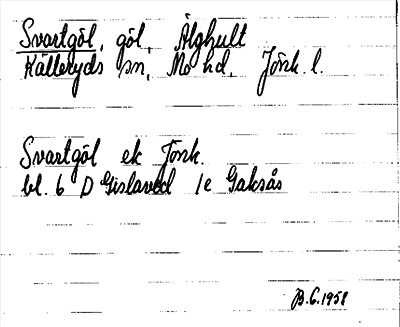 Svartgöl, göl, Älghult
Källeryds sn, Mo hd, Jönk. l.
Svartgöl ek Jönk.
bl. 6 D Gislaved 1e Gaksås
B.C. 1958